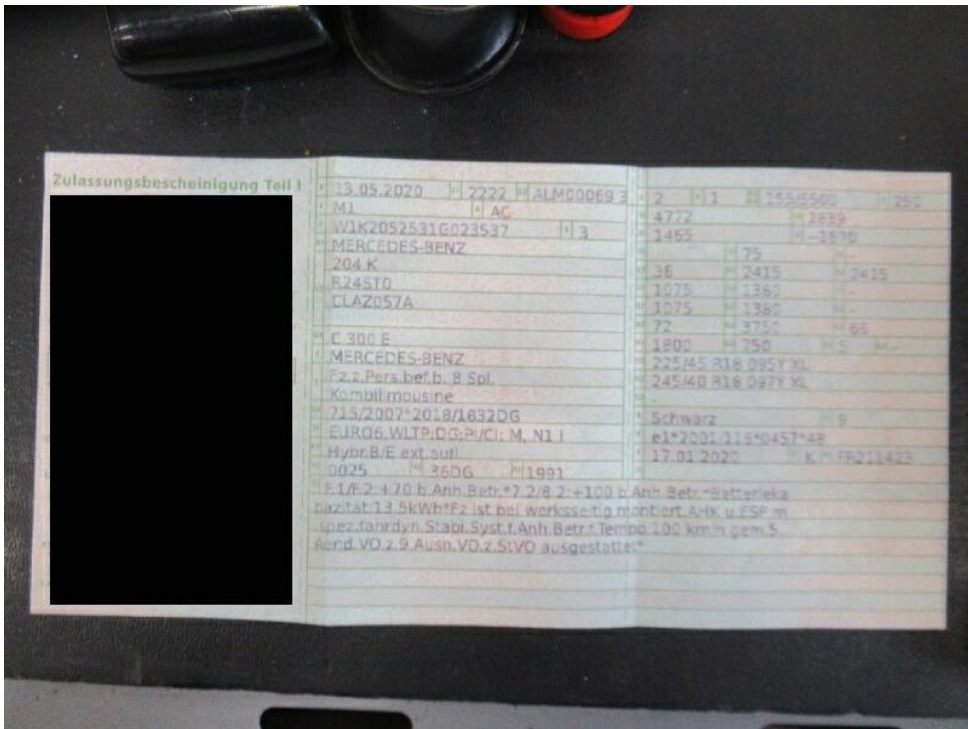 Zulassungsbescheinigung Teil I
13.05.2020 2222 ALM00069 3
M1 AC
W1K2052531G023537 3
MERCEDES-BENZ
204 K
R24ST0
CLAZ057A
C 300 E
MERCEDES-BENZ
Fz.z.Pers.bef.b. 8 Spl.
Kombilimousine
715/2007*2018/1832DG
EURO6 WLTP;DG;PI/CI; M, N1 I
Hybr.B/E ext.aufl
0025 36DG 1991
2 1 155/5500 250
4772
1465
75 -
36 2415 2415
1075 1360 -
1075 1360 -
72 3750 66
1800 750 5 -
225/45 R18 095Y XL
245/40 R18 097Y XL
-
Schwarz 9
e1*2001/116*0457*48
17.01.2020 K FR211423
F.1/F.2:+70 b.Anh.Betr.*7.2/8.2:+100 b.Anh.Betr.*Batterieka
pazität:13,5kWh*Fz ist bei werksseitig montiert.AHK u.ESP m
spez.fahrdyn.Stabi.Syst.f.Anh.Betr.f.Tempo 100 km/h gem.5
Aend.VO.z.9.Ausn.VO.z.StVO ausgestattet*